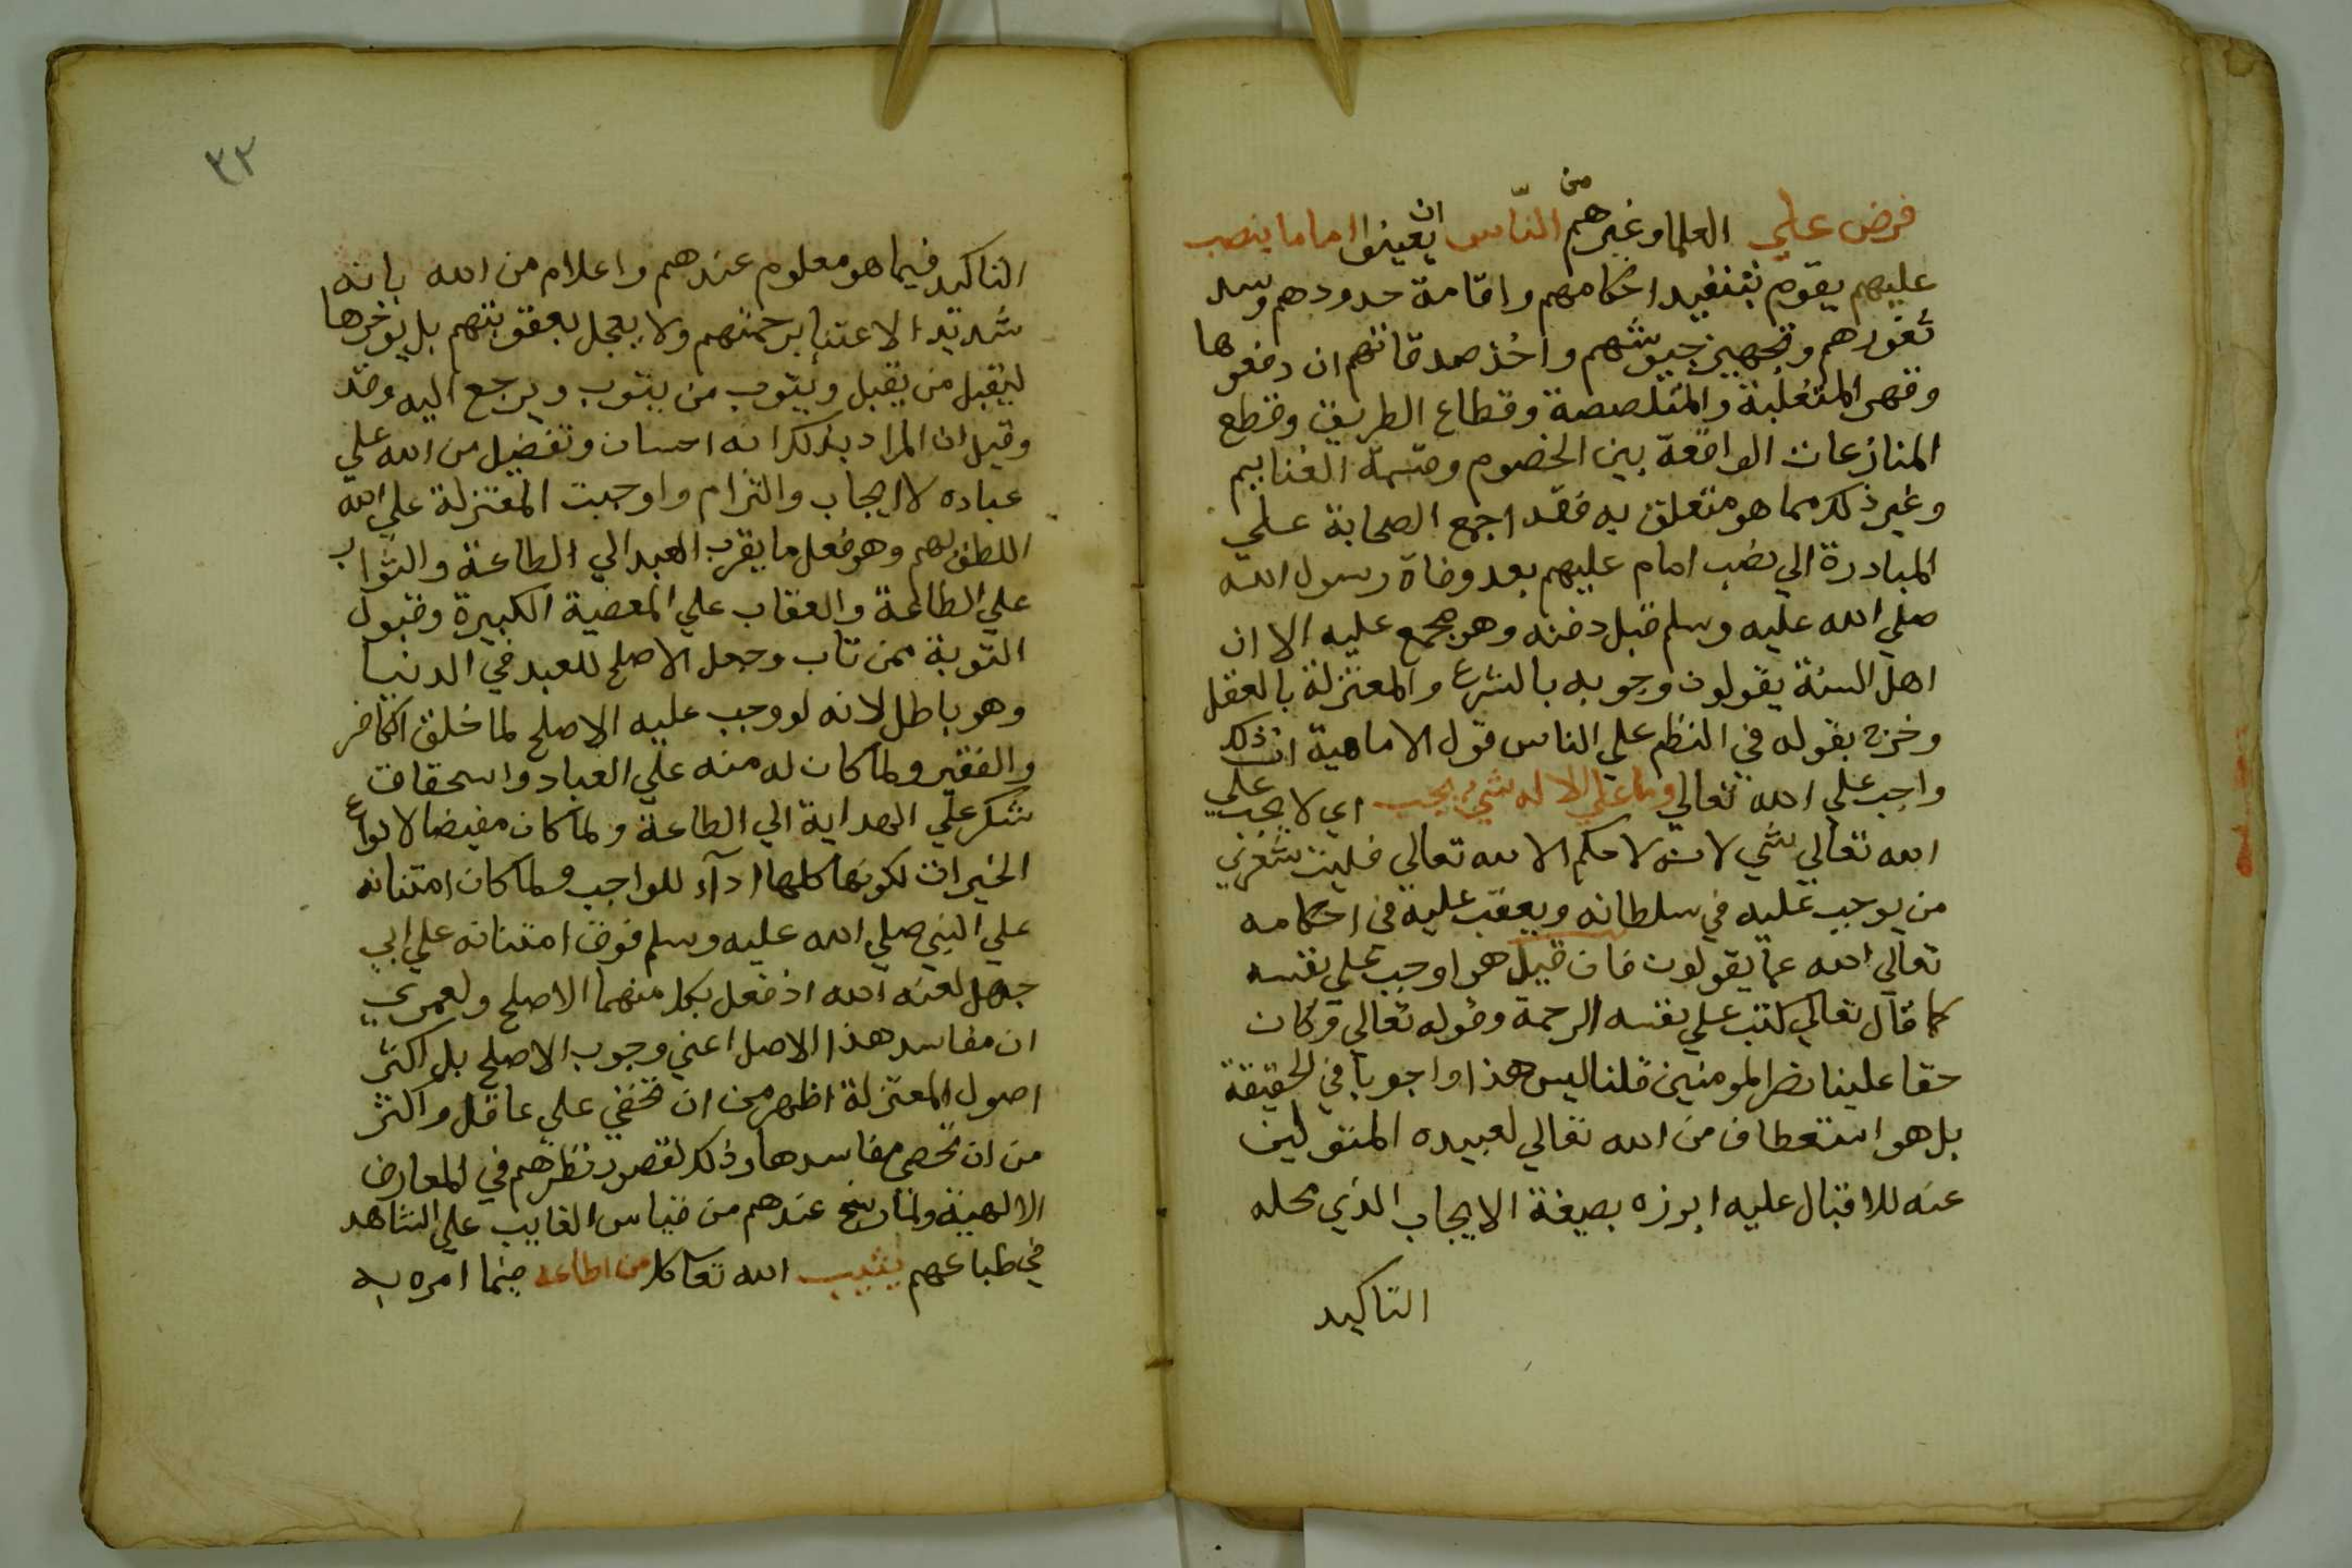 فرض علي العلما وغيرهم من النّاس ان يعينوا اماما ينصب
عليهم يقوم بتنفيد احكامهم واقامة حدودهم وسد
ثغورهم وتجهيز جيوشهم واخذ صدقاتهم ان دفعوها
وقهر المتغلبة والمتلصصة وقطاع الطريق وقطع
المنازعات الواقعة بين الخصوم وقسمة الغنايم
وغير ذلك مما هو متعلق به فقد اجمع الصحابة علي
المبادرة الي نصب امام عليهم بعد وفاة رسول الله
صلي الله عليه وسلم قبل دفنه وهو مجمع عليه الا ان
اهل السنة يقولون وجوبه بالشرع والمعتزلة بالعقل
وخرج بقوله في النظم علي الناس قول الامامية ان ذلك
واجب علي الله تعالي وما علي الاله شي يجب اي لا يجب علي
الله تعالي شي لانه لا حكم الا لله تعالي فليت شعري
من يوجب عليه في سلطانه ويعقب عليه في احكامه
تعالي الله عما يقولون فان قيل هو اوجب علي نفسه
كما قال تعالي كتب علي نفسه الرحمة وقوله تعالي وكان
حقا علينا نصر المومنين قلنا ليس هذا واجوبا في الحقيقة
بل هو استعطاف من الله تعالي لعبيده المتولين
عنه للاقبال عليه ابرزه بصيغة الايجاب الذي محله
التاكيد
٣٢
التاكيد فيما هو معلوم عندهم واعلام من الله بانه
شديد الاعتنا برحمتهم ولا يعجل بعقوبتهم بل يوخرها
ليقبل من يقبل ويتوب من يتوب ويرجع اليه وقد
وقيل ان المراد بذلك انه احسان وتفضيل من الله علي
عباده لا ايجاب والتزام واوجبت المعتزلة علي الله
اللطف لهم وهو فعل ما يقرب العبد الي الطاعة والثواب
علي الطاعة والعقاب علي المعصية الكبيرة وقبول
التوبة ممن تاب وجعل الاصلح للعبد في الدنيا
وهو باطل لانه لو وجب عليه الاصلح لما خلق الكافر
والفقير ولما كان له منه علي العباد واستحقاق
شكر علي الهداية الي الطاعة ولما كان مفيضا لانواع
الخيرات لكونها كلها اداء للواجب ولما كان امتنانه
علي النبي صلي الله عليه وسلم فوق امتنانه علي ابي
جهل لعنه الله اذ فعل بكل منهما الاصلح ولعمري
ان مفاسد هذا الاصل اعني وجوب الاصلح بل اكثر
اصول المعتزلة اظهر من ان تخفي علي عاقل واكثر
من ان تحصي مفاسدها وذلك لقصور نظرهم في المعارف
الالهية ولما رسخ عندهم من قياس الغايب علي الشاهد
في طباعهم يثيب الله تعا كل من اطاعه فيما امره به